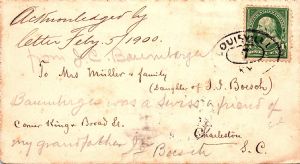 Acknowledged by
letter Feby. 5/1900.
from J.C. Baumberger
LOUISVILLE
KY.
To Mrs Müller & family
(Daughter of J.J. Boesch)
Baumberger was a Swiss & friend of
Corner King & Broad St.
my grandfather JJ Boesch
Charleston
S.C.